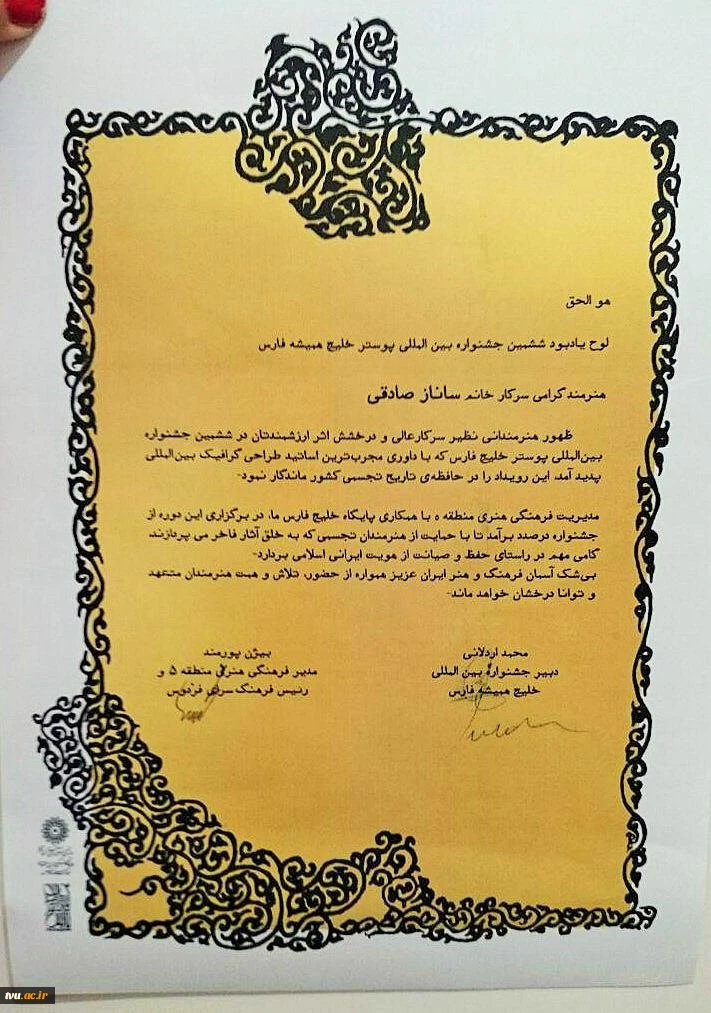 هو الحق
لوح یادبود ششمین جشنواره بین المللی پوستر خلیج همیشه فارس
هنرمند گرامی سرکار خانم ساناز صادقی
ظهور هنرمندانی نظیر سرکارعالی و درخشش اثر ارزشمندتان در ششمین جشنواره
بین‌المللی پوستر خلیج فارس که با داوری مجرب‌ترین اساتید طراحی گرافیک بین‌المللی
پدید آمد، این رویداد را در حافظه‌ی تاریخ تجسمی کشور ماندگار نمود-
مدیریت فرهنگی هنری منطقه ۵ با همکاری پایگاه خلیج فارس ما، در برگزاری این دوره از
جشنواره درصدد برآمد تا با حمایت از هنرمندان تجسمی که به خلق آثار فاخر می پردازند،
گامی مهم در راستای حفظ و صیانت از هویت ایرانی اسلامی بردارد-
بی‌شک آسمان فرهنگ و هنر ایران عزیز همواره از حضور، تلاش و همت هنرمندان متعهد
و توانا درخشان خواهد ماند-
محمد اردلانی
دبیر جشنواره بین المللی
خلیج همیشه فارس
بیژن پورمند
مدیر فرهنگی هنری منطقه ۵ و
رئیس فرهنگ سرای فردوس
tvu.ac.ir